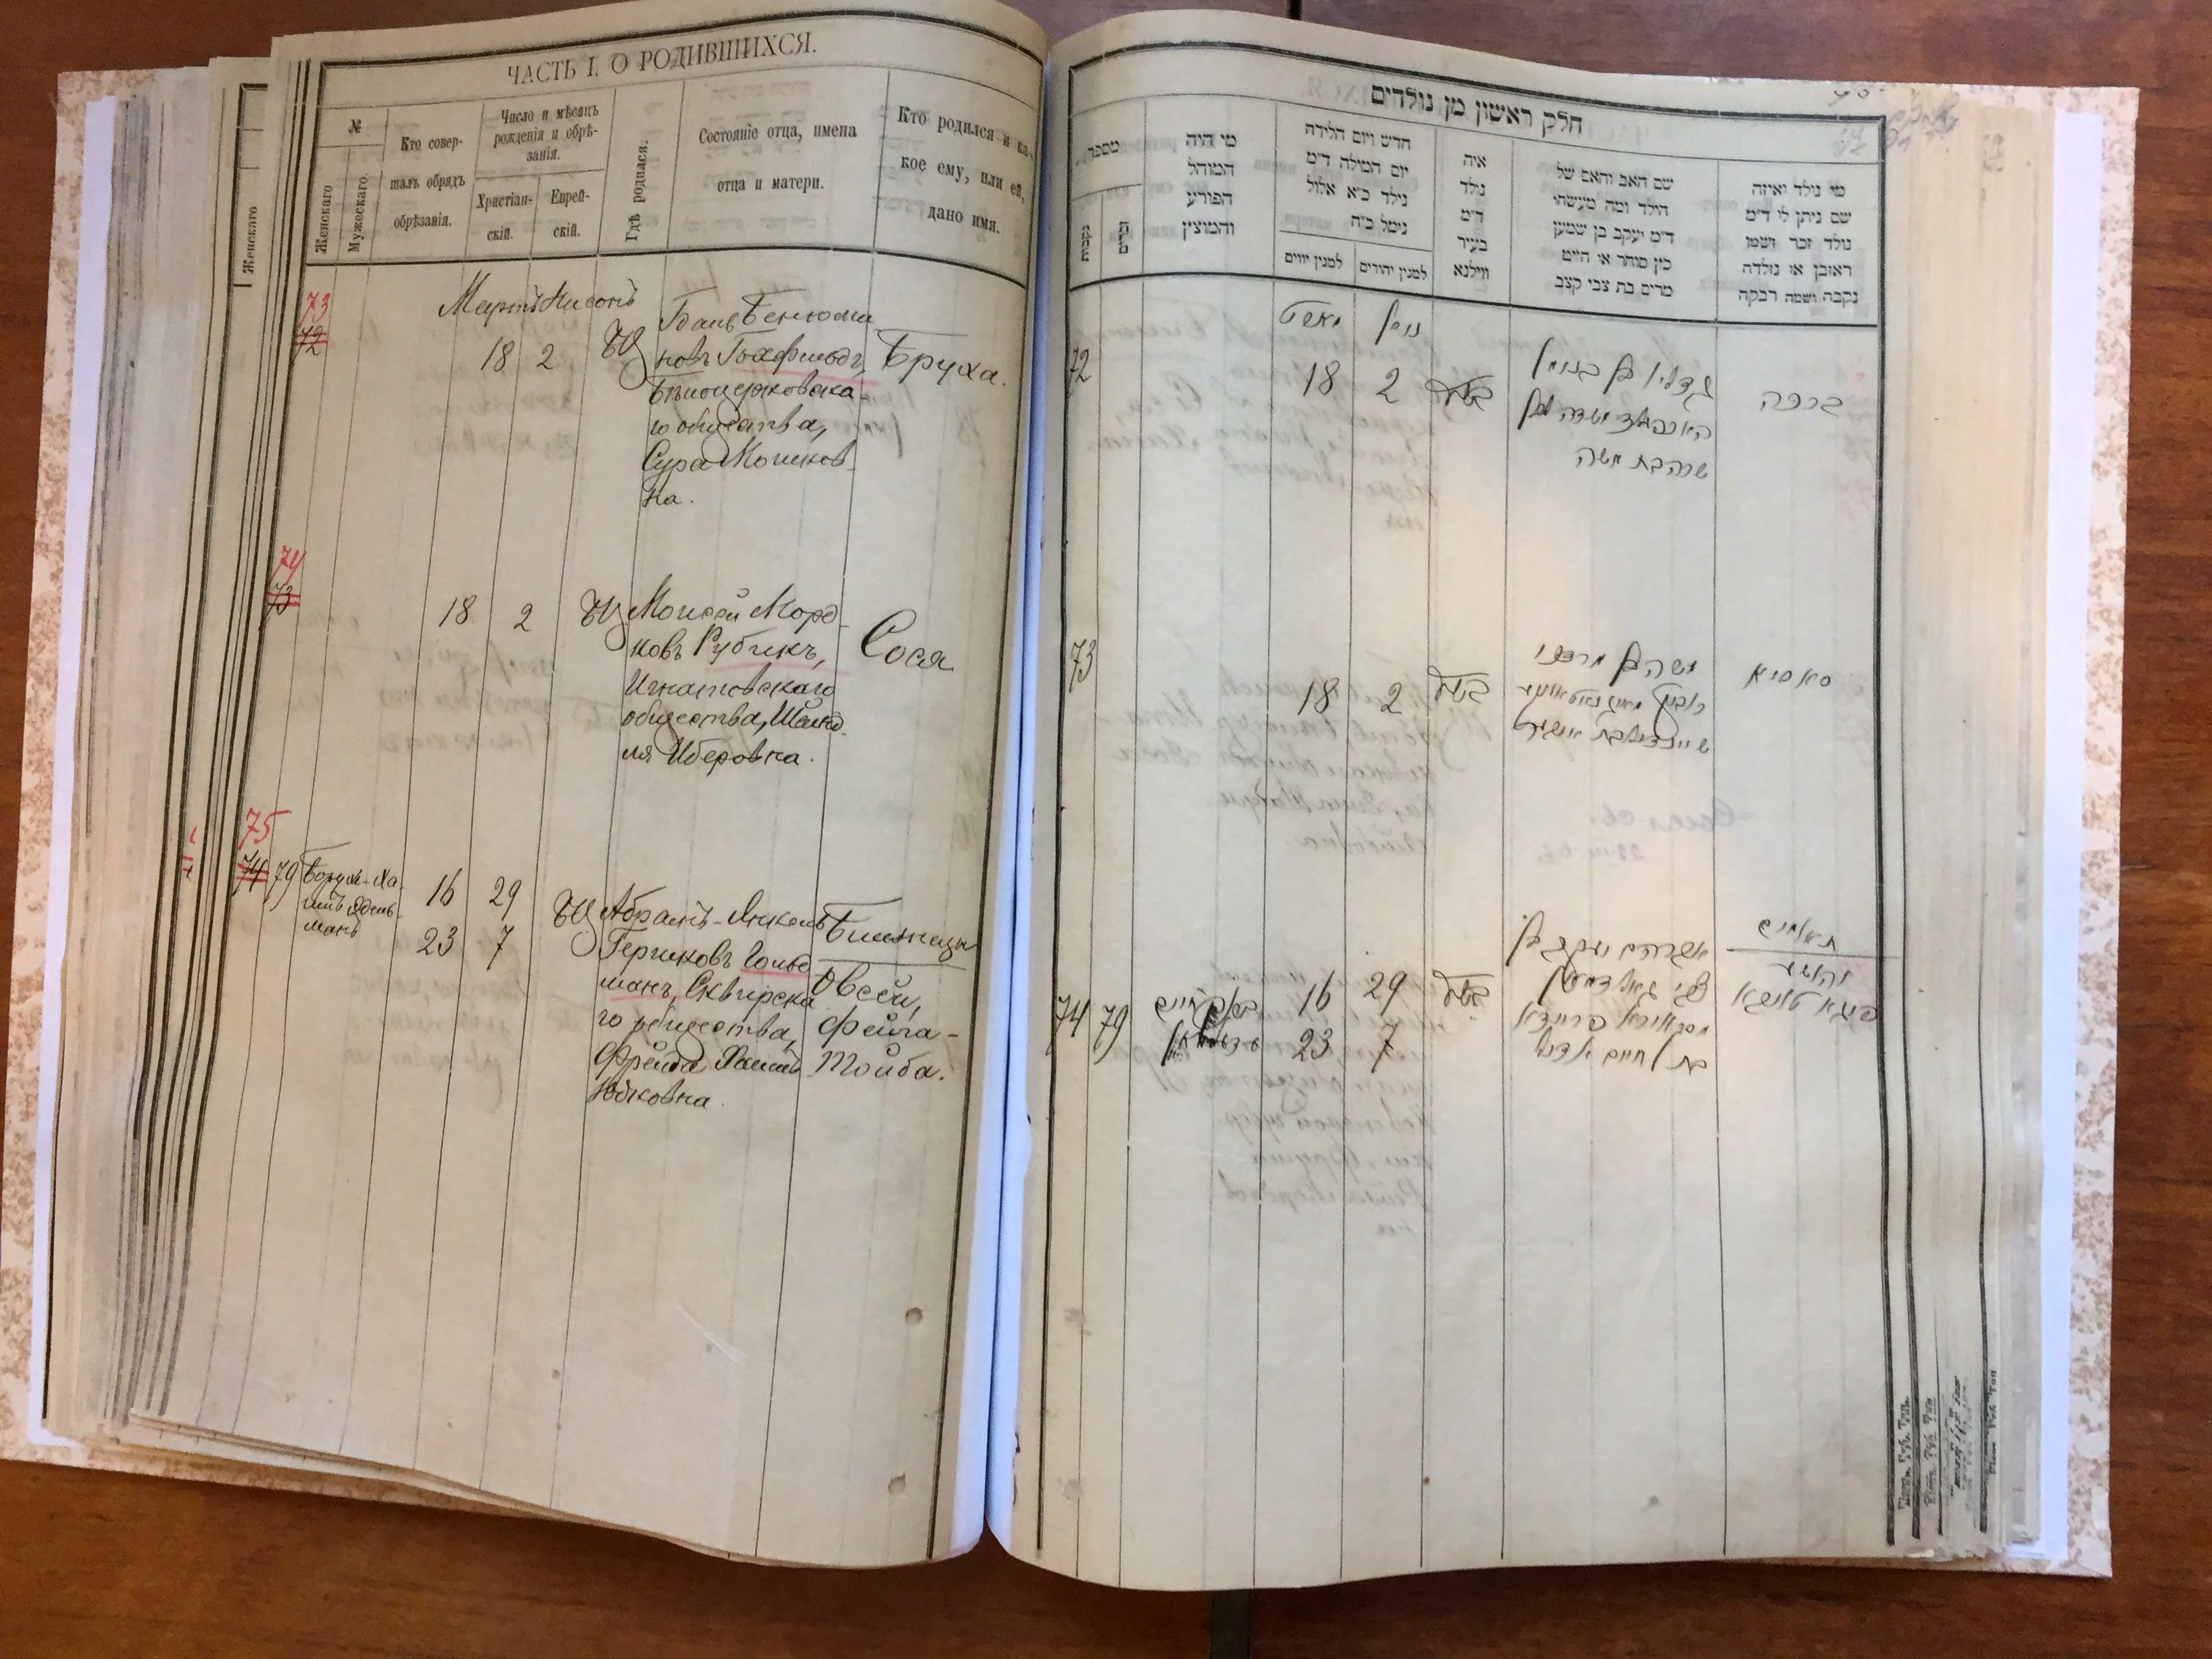 ЧАСТЬ I. О РОДИВШИХСЯ.
№
Женскаго
Мужескаго.
Кто совер-
шалъ обрядъ
обрѣзанія.
Число и мѣсяцъ
рожденія и обрѣ-
занія.
Христіан-
скій.
Еврей-
скій.
Гдѣ родился.
Состояніе отца, имена
отца и матери.
Кто родился и ка-
кое ему, или ей,
дано имя.
Женскаго
Мартъ Нисонъ
73
72
18 2 БЦ
Бенюми
новъ
Бѣлоцерковска-
го общества,
Сура Мошков-
на.
Бруха.
74
73
18 2 БЦ
Моисей Морд-
ковъ Рубчикъ,
Игнатовскаго
общества, Шейнд-
ля Иберовна.
Сося
75
74 79
Борух-Ха-
имъ Эдель-
манъ
16 29
23 7
БЦ
Абрамъ-Янкель
Гершковъ Гольд
манъ, Сквирска
го общества,
Фрейда Хаимъ
Юдковна.
Близнецы
Овсей,
Фейга-
Тойба.
חלק ראשון מן נולדים
מספר
נקבות
זכרים
מי היה
המוהל
הפורע
והמוצץ
חדש ויום הלידה
יום המילה ד״מ
נילד כ״א אלול
נימל כ״ה
למנין יווים
למנין יהודים
איה
נולד
ד״מ
בעיר
ווילנא
שם האב והאם של
הילד ומה מעשהו
ד״מ יעקב בן שמעון
כ״ץ סוחר או חייט
מרים בת צבי קצב
מי נולד ואיזה
שם ניתן לו ד״מ
נולד זכר ושמו
ראובן או נולדה
נקבה ושמה רבקה
מארט ניסן
72 18 2
בן בנימין
שרה בת משה
ברכה
73 18 2
משה בן מרדכי
סאסיא
74 79
16 29
23 7
אברהם יעקב בן
צבי גאלדמאן
תאומים